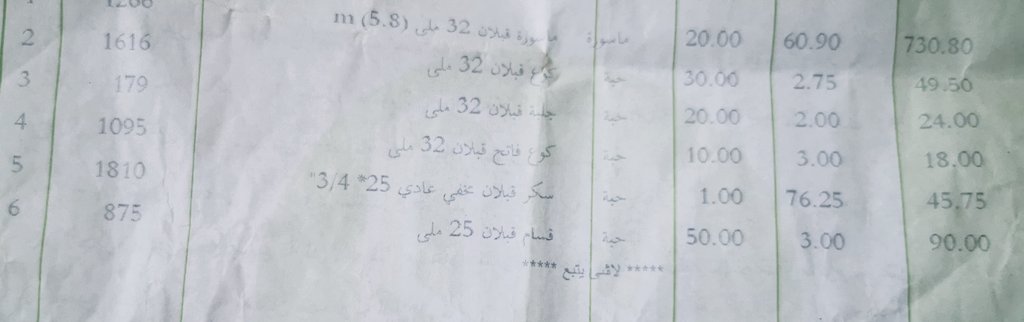 1 1266
2 1616 ماسورة قبلان 32 ملى (5.8) m ماسورة 20.00 60.90 730.80
3 179 كوع قبلان 32 ملى حبة 30.00 2.75 49.50
4 1095 جلبة قبلان 32 ملى حبة 20.00 2.00 24.00
5 1810 كوع فاتح قبلان 32 ملى حبة 10.00 3.00 18.00
6 875 سكر قبلان مخفي عادي 25* 3/4" حبة 1.00 76.25 45.75
قسام قبلان 25 ملى حبة 50.00 3.00 90.00
***** يتبع *****